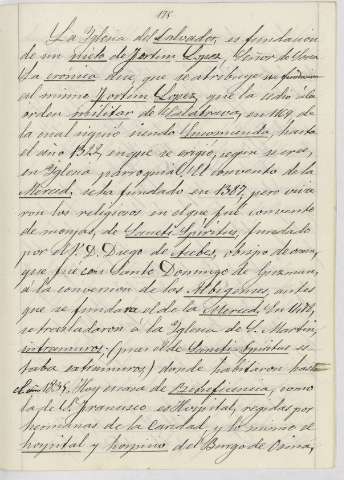 178
La Iglesia del Salvador, es fundación
de un nieto de Fortún Lopez, Señor de Soria
La crónica dice, que se atribuye su fundacion
al mismo Fortún Lopez, que la cedió á la
orden militar de Calatrava, en 1169, de
la cual siguió siendo Encomienda, hasta
el año 1322, en que se erigió, segun se cree,
en Iglesia parroquial. El convento de la
Merced, se ha fundado en 1387, pero vivie
ron los religiosos en el que fué convento
de monjas, de Sancti Spíritus, fundado
por el V. D. Diego de Acebes, obispo de Osma,
que fué con Santo Domingo de Guzman,
á la conversion de los Albigenses, antes
que se fundara el de la Merced. En 1486
se trasladaron á la Iglesia de S. Martin,
intramuros; (pues el de Sancti Spíritus es-
taba extramuros) donde habitaron hasta
el año 1835. Hay en casa de Beneficencia, como
la de S. Francisco, es Hospital, regidas por
hermanas de la Caridad, y lo mismo el
hospital y hospicio del Burgo de Osma,